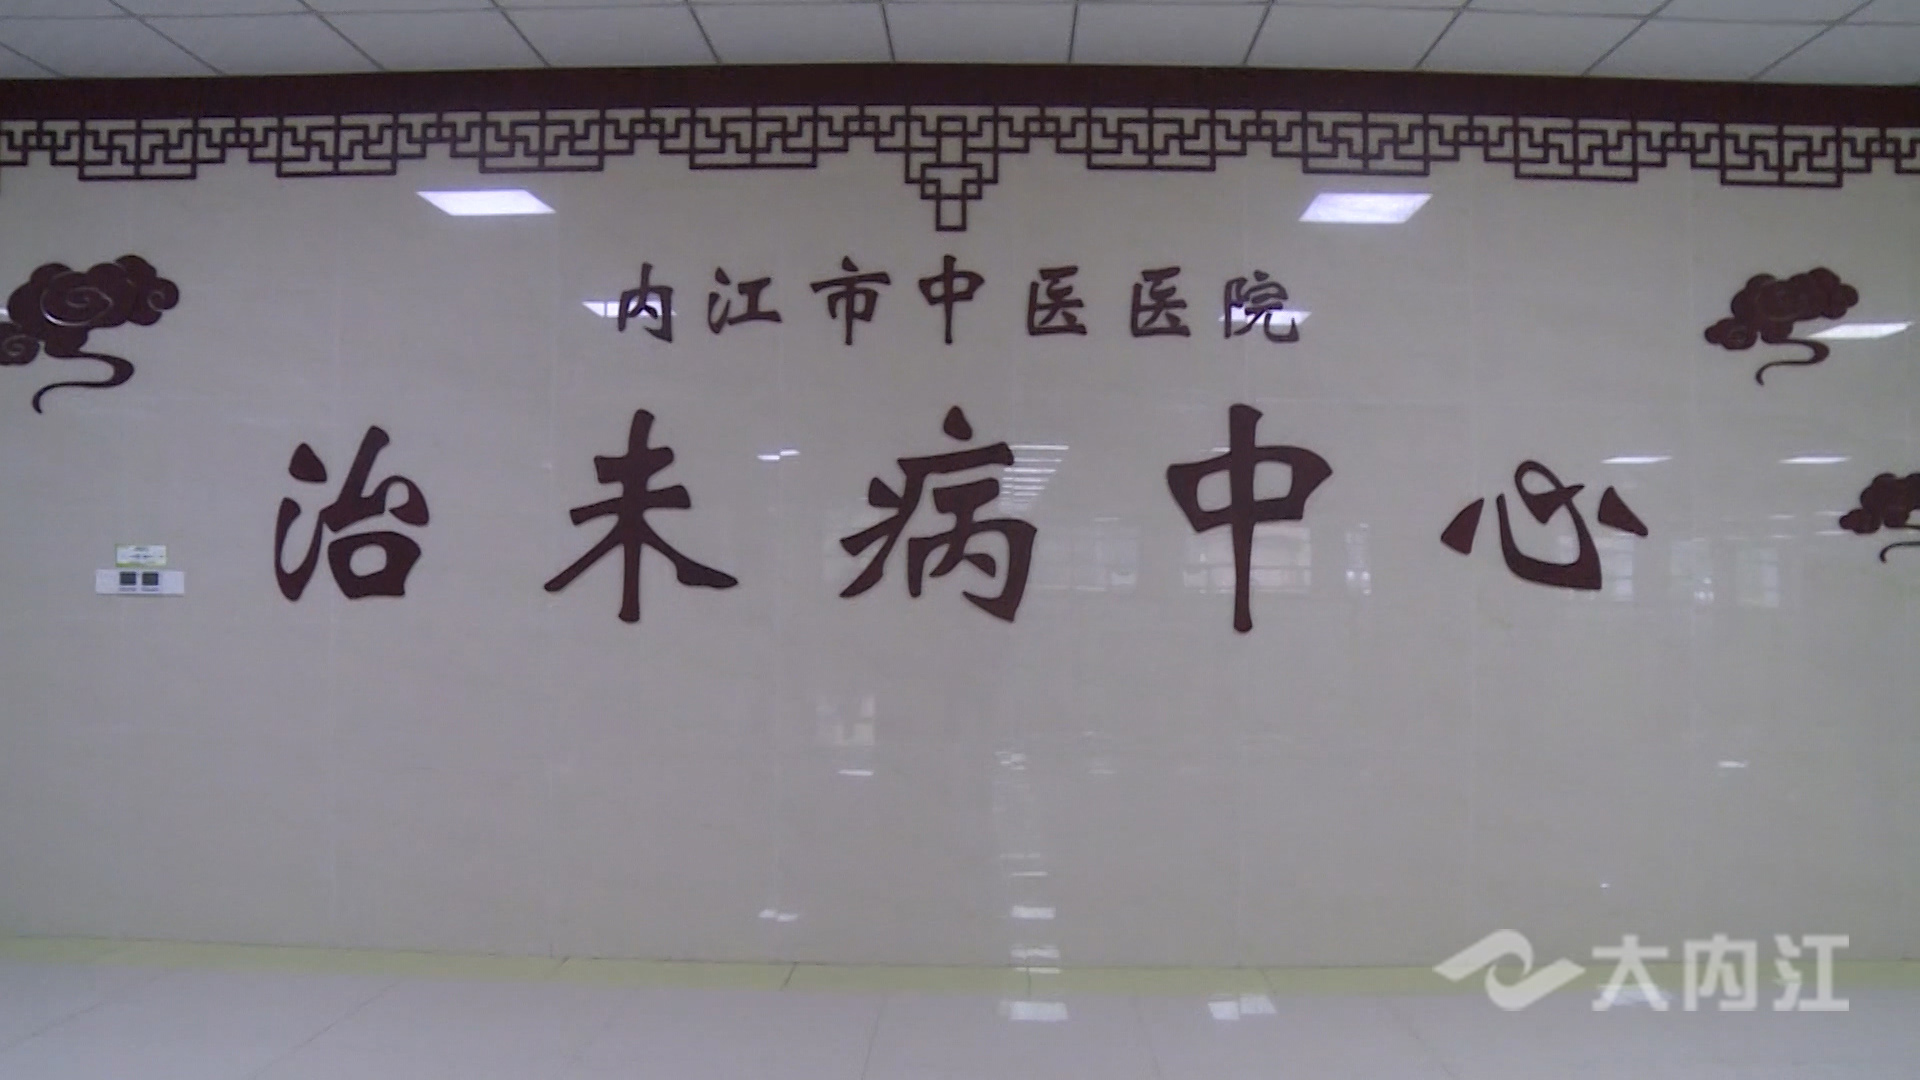 内江市中医医院
治未病中心
大内江